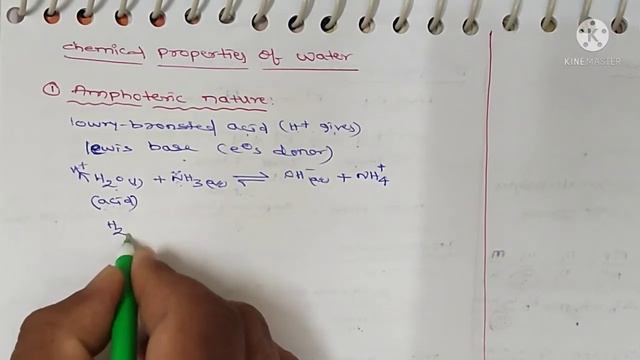 chemical properties of water
KINEMASTER
① Amphoteric nature:
lowry-bronsted acid (H+ gives)
lewis base (e⊖s donor)
H+ H2O(l) + NH3(aq) ⇌ OH-(aq) + NH4+
(acid)
H2